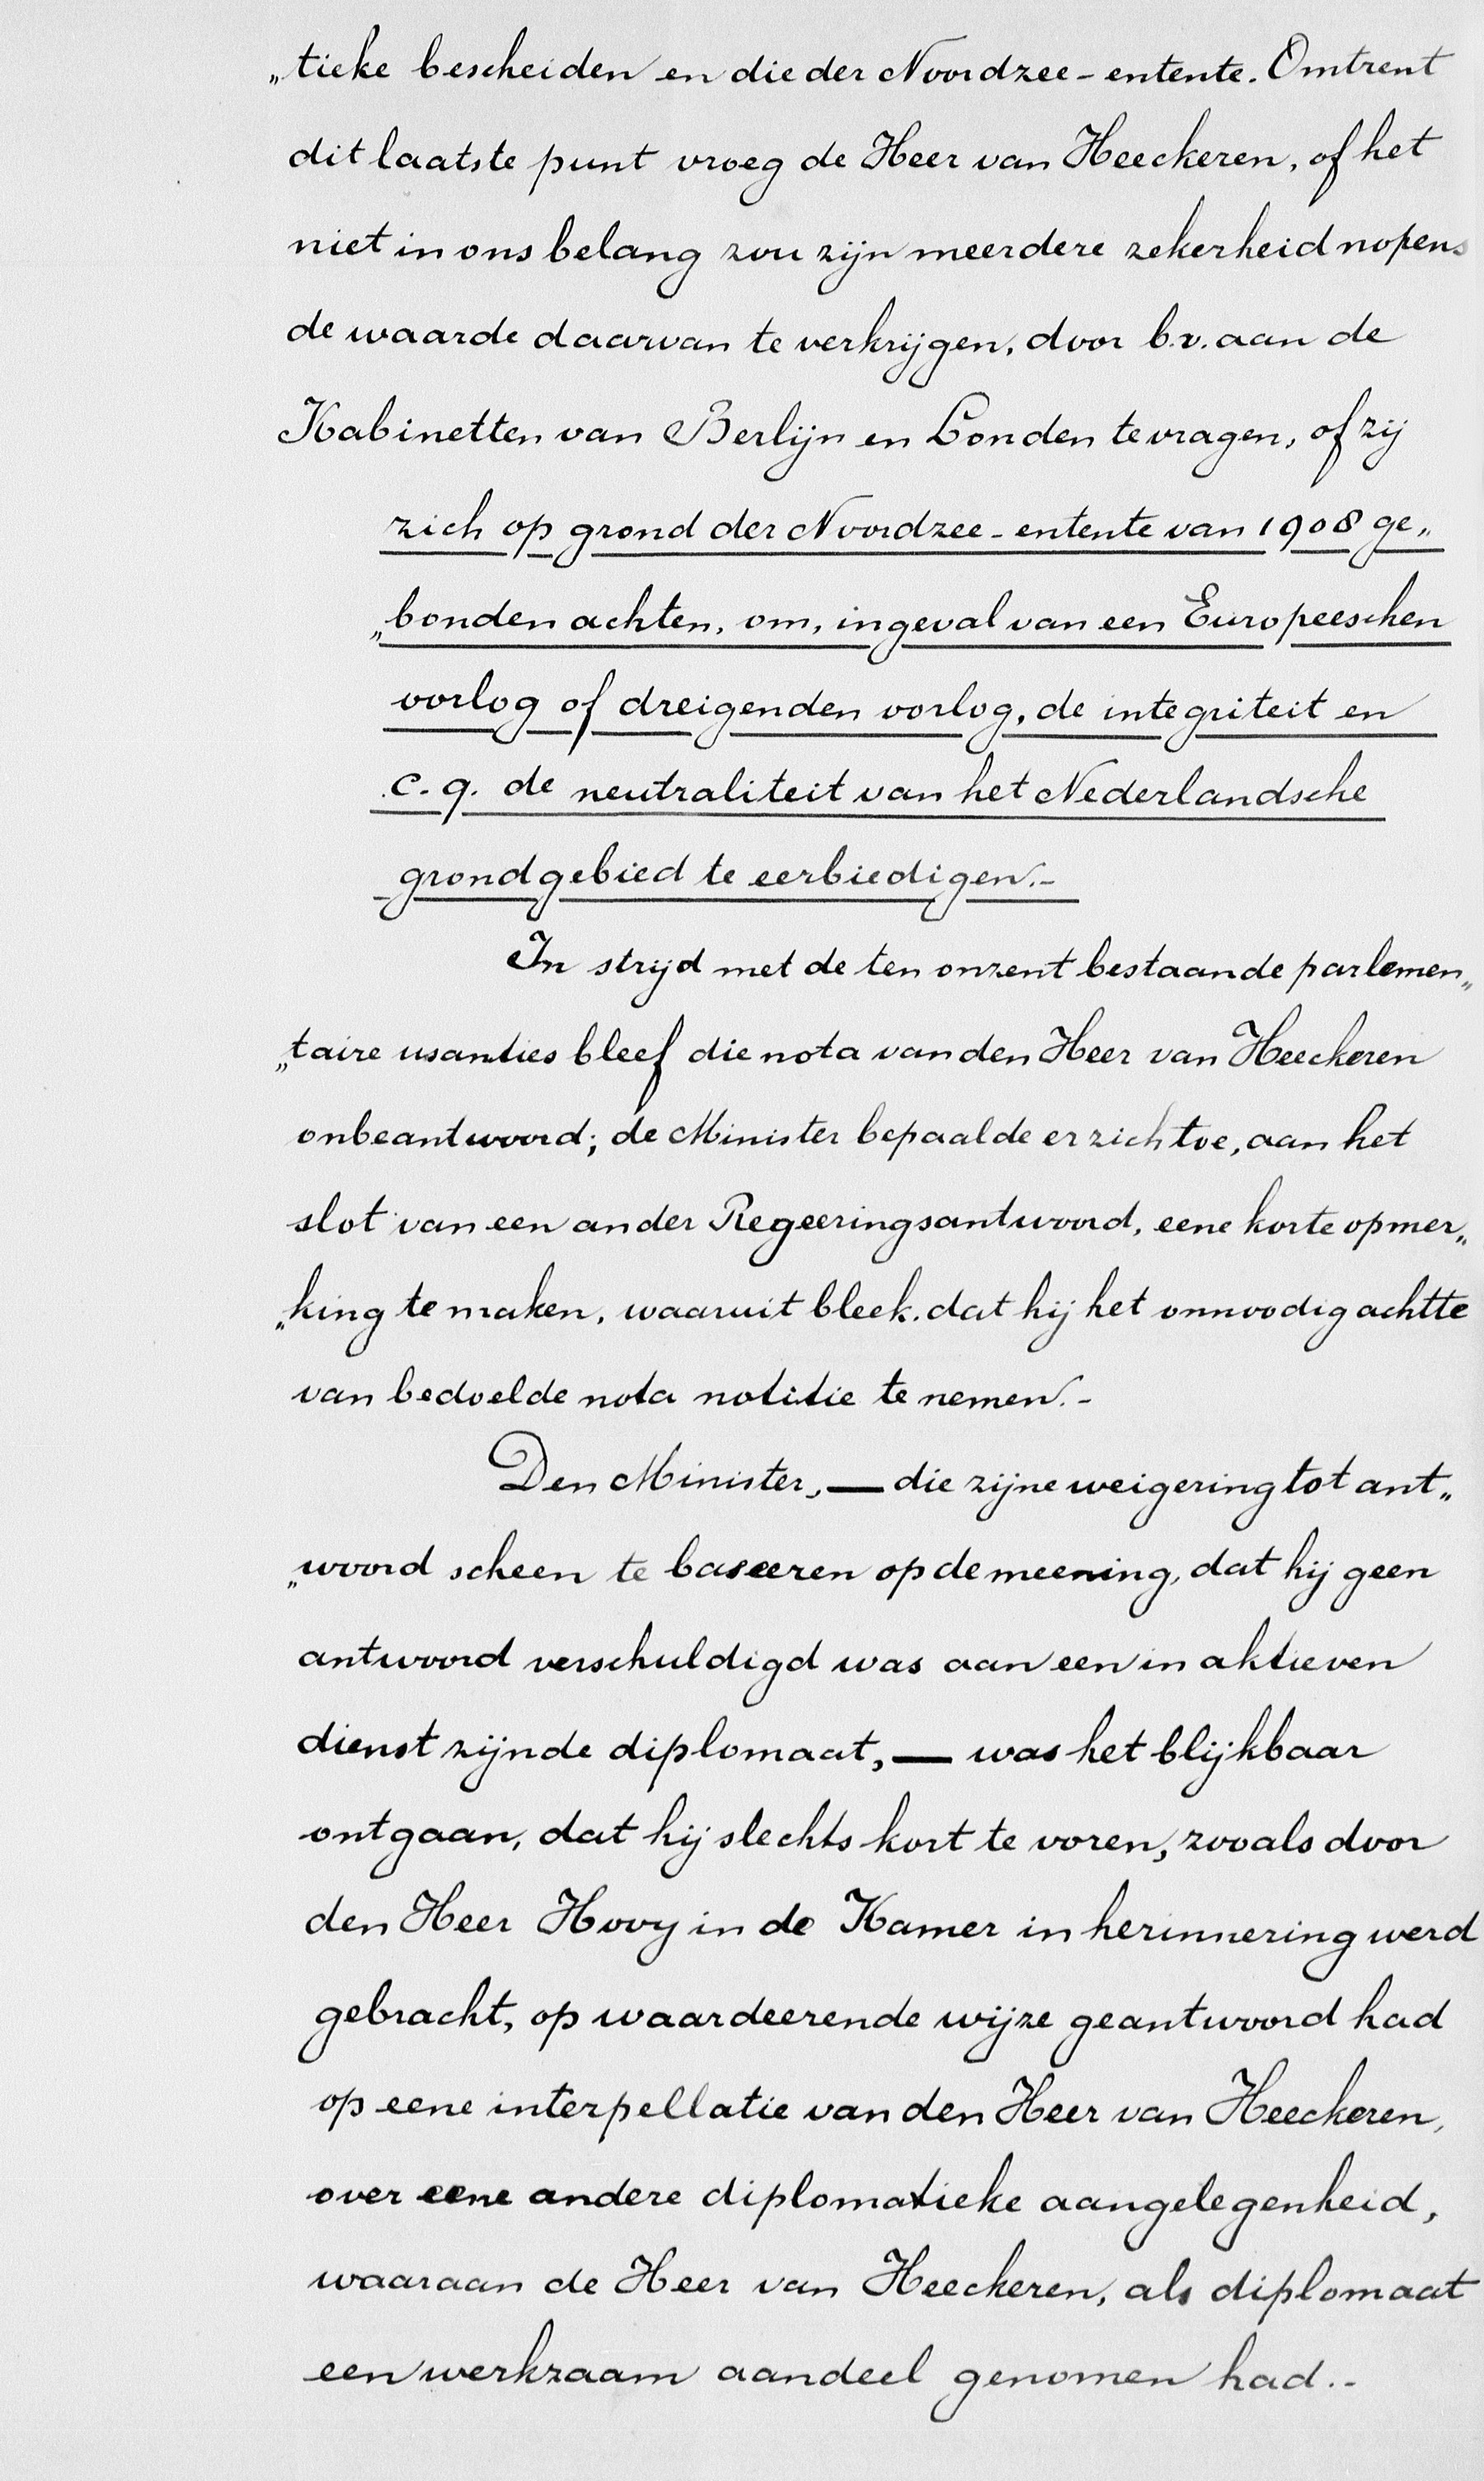 „tieke bescheiden en die der Noordzee-entente. Omtrent
dit laatste punt vroeg de Heer van Heeckeren, of het
niet in ons belang zou zijn meerdere zekerheid nopens
de waarde daarvan te verkrijgen, door b.v. aan de
Kabinetten van Berlijn en Londen te vragen, of zij
zich op grond der Noordzee-entente van 1908 ge„
„bonden achten, om, ingeval van een Europeeschen
oorlog of dreigenden oorlog, de integriteit en
c.q. de neutraliteit van het Nederlandsche
grondgebied te eerbiedigen.-
In strijd met de ten onzent bestaande parlemen„
„taire usanties bleef die nota van den Heer van Heeckeren
onbeantwoord; de Minister bepaalde er zich toe, aan het
slot van een ander Regeeringsantwoord, eene korte opmer„
„king te maken, waaruit bleek, dat hij het onnoodig achtte
van bedoelde nota notitie te nemen.-
Den Minister, — die zijne weigering tot ant„
„woord scheen te baseeren op de meening, dat hij geen
antwoord verschuldigd was aan een in aktieven
dienst zijnde diplomaat, — was het blijkbaar
ontgaan, dat hij slechts kort te voren, zooals door
den Heer Hovy in de Kamer in herinnering werd
gebracht, op waardeerende wijze geantwoord had
op eene interpellatie van den Heer van Heeckeren,
over eene andere diplomatieke aangelegenheid,
waaraan de Heer van Heeckeren, als diplomaat
een werkzaam aandeel genomen had.-